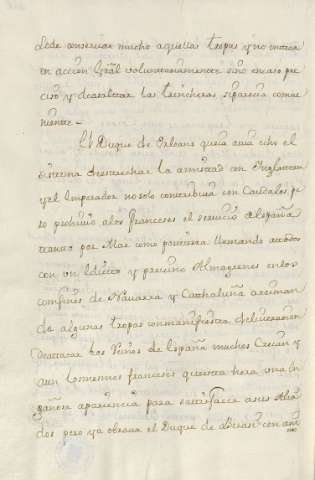 dede conservar mucho aquellas tropas y no meterse
en accion Gral voluntariamente sino en caso pre
ciso y desalojar las trincheras si parecia conve
niente.
El Duque de Orleans que
sistema de estrechar la amistad con Inglaterra
y el Imperador no solo contribuia con Caudales pe
ro prohivio alos franceses el servicio de España
tanto por Mar como por tierra llamando a todos
con un Edicto y previno Almagacenes en los
confines de Navarra y Cathaluña arriman
do algunas tropas con manifiesta deliveracion
de attacar los Reinos de España muchos Creian y
aun los mesmos franceses que esta hera una en
gañosa apariencia para satisfacer a sus Alia
dos pero ya obrava el Duque de con